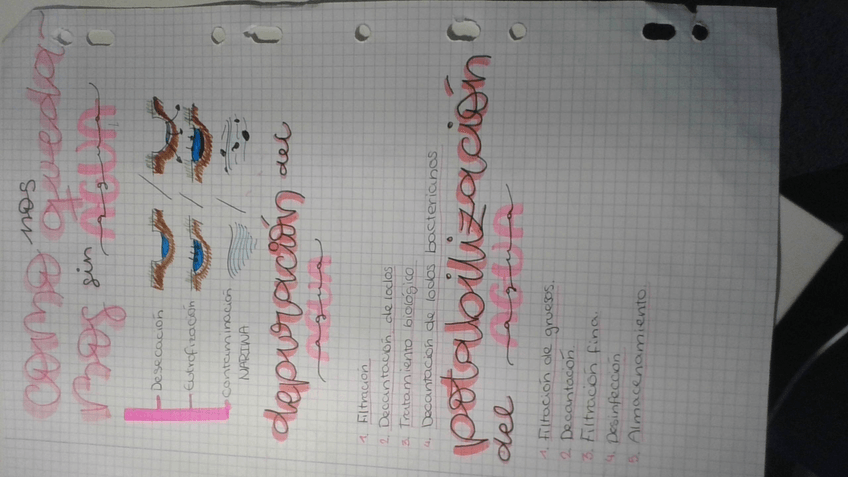 como nos queda-
mos sin AGUA agua
Desecación
Eutrofización
contaminación
MARINA
depuración del
AGUA agua
1. Filtración
2. Decantación de lodos
3. Tratamiento biológico
4. Decantación de lodos bacterianos
potabilización
del AGUA agua
1. Filtación de gruesos.
2 Decantación
3. Filtración fina.
4. Desinfección
5. Almacenamiento